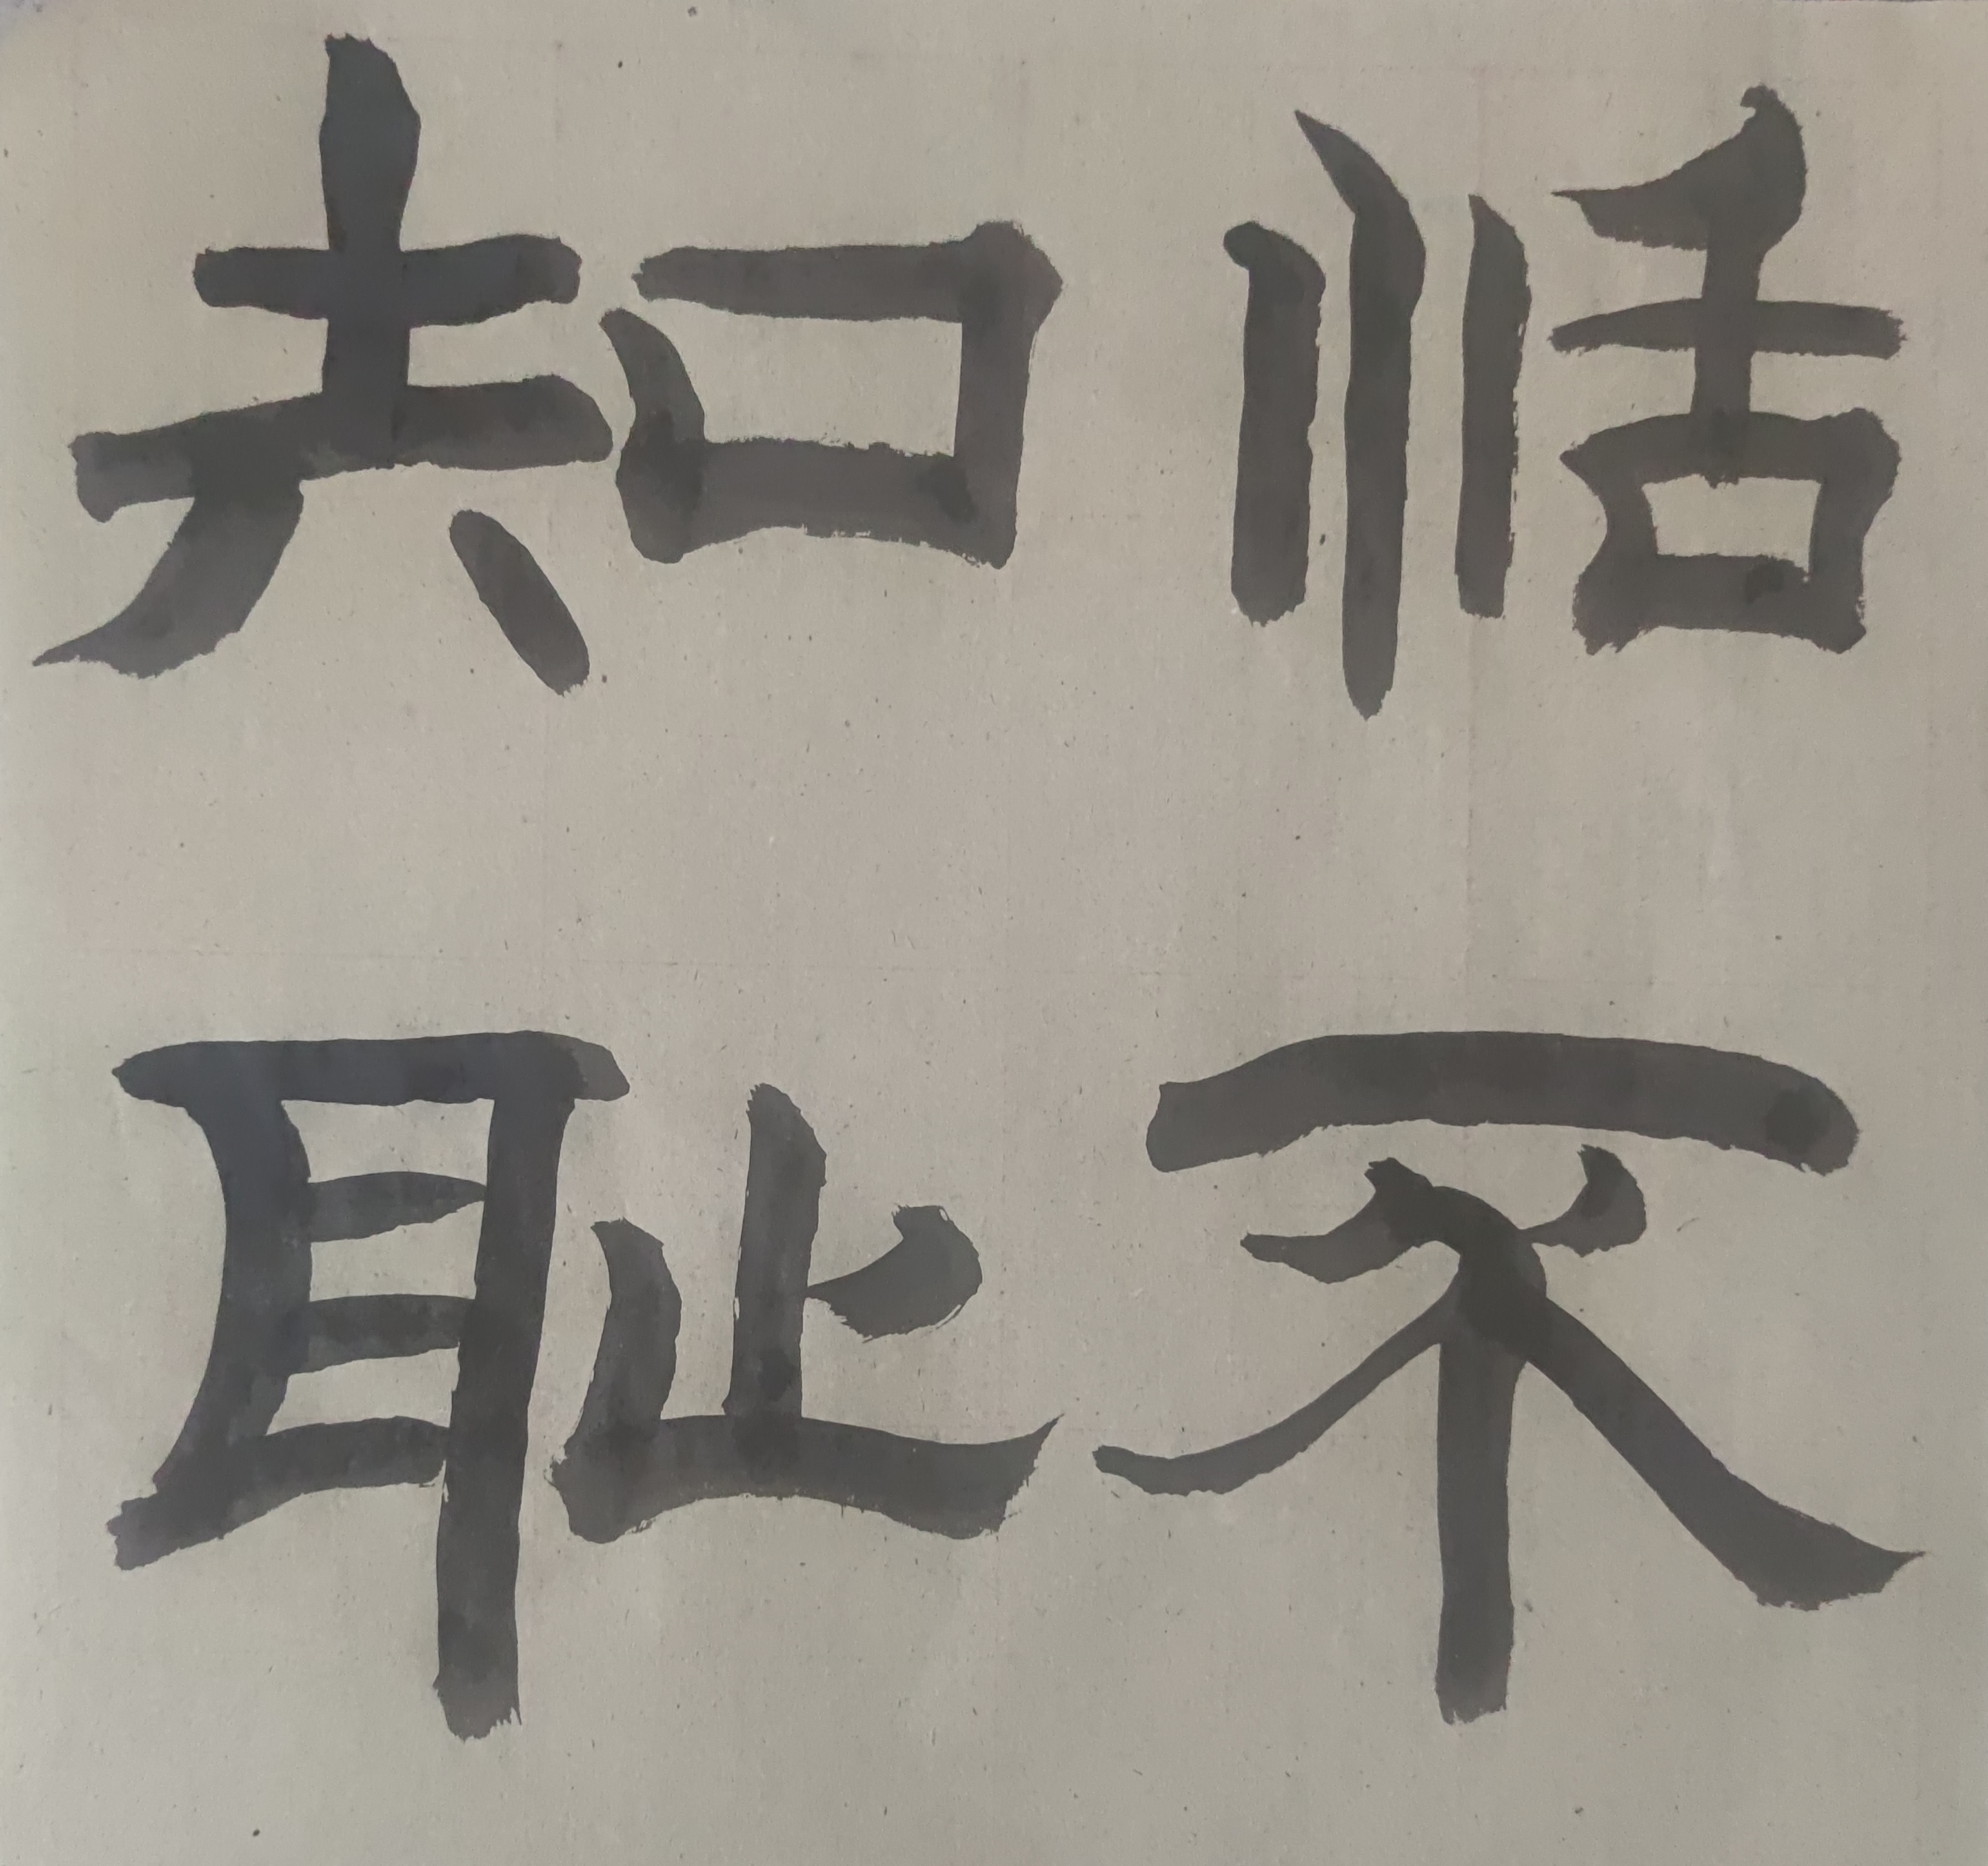 恬不
知耻